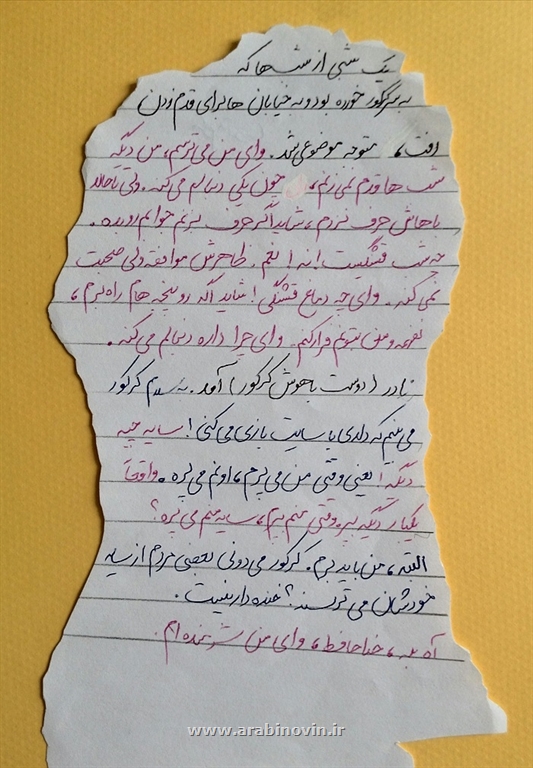 یک شبی از شب ها که
به سر کرگور خورده بود و به خیابان ها برای قدم زدن
رفت، متوجه موضوعی شد. وای من می ترسم، من دیگه
شب ها قدم نمی زنم، چون یکی دنبالم می کنه. ولی تا حالا
باهاش حرف نزدم، شاید اگر حرف بزنم جوابم رو بده.
چه شب قشنگیست! نه! نظرم. ظاهرش موافقه ولی صحبت
نمی کنه. وای چه دماغ قشنگی! شاید اگه رو پنجه هام راه برم،
نفهمه و من بتونم فرار کنم. وای چرا داره دنبالم می کنه.
نادر (دوست باهوش کرگور) آمد. به سلام کرگور
می بینم که داری با سایت بازی می کنی! سایه چیه
دیگه! یعنی وقتی من می پرم، اونم می پره. واقعاً
یکبار دیگه بپر. وقتی منم بپرم، سایه منم می پره؟
البته، من باید برم. کرگور می دونی بعضی مردم از سایه
خودشان می ترسند؟ خنده دار نیست.
آه بله، خداحافظ، وای من شرمنده ام.
www.arabinovin.ir